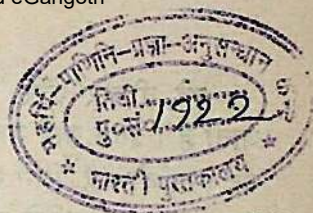 eGangotri
महर्षि-पाणिनि-प्रज्ञा-अनुसन्धान
तिथी.........
पु०सं०1922
* भारती पुस्तकालय *